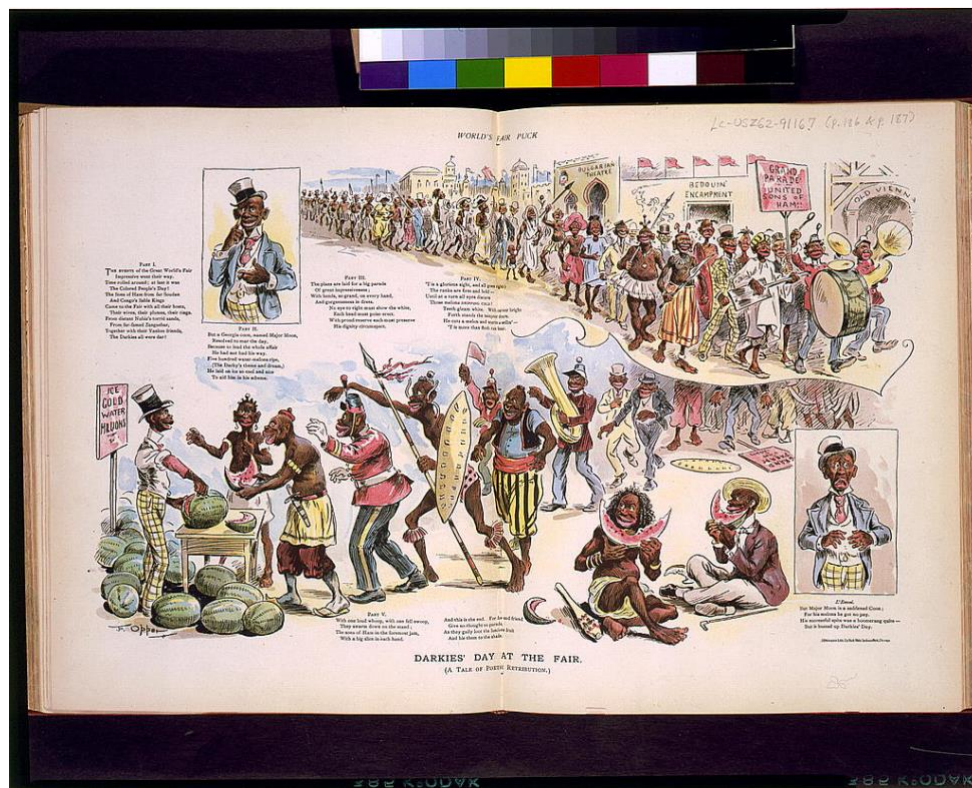 LC-USZ62-91167 (p. 186 & p. 187)
WORLD'S FAIR PUCK
BULGARIAN
THEATRE
BEDOUIN
ENCAMPMENT
GRAND
PARADE
UNITED
SONS OF
HAM!!
OLD VIENNA
PART I.
The events of the Great World's Fair
Impressive went their way.
Time rolled around; at last it was
The Colored People's Day!
The Sons of Ham from far Soudan
And Congo's Sable Kings
Came to the Fair with all their hosts,
Their wives, their plumes, their rings.
From distant Nubia's torrid sands,
From far-famed Zanzibar,
Together with their Yankee friends,
The Darkies all were dar!
PART II.
But a Georgia coon, named Major Moon,
Resolved to mar the day,
Because to lead the whole affair
He had not had his way.
Five hundred water-melons ripe,
(The Darky's theme and dream,)
He laid on ice so cool and nice
To aid him in his scheme.
PART III.
The plans are laid for a big parade
Of great impressiveness;
With bands, so grand, on every hand,
And gorgeousness in dress.
No eye to right must show the white,
Each head must poise erect.
With proud reserve each must preserve
His dignity circumspect.
PART IV.
'Tis a glorious sight, and all goes right;
The ranks are firm and bold —
Until at a turn all eyes discern
Those melons
Teeth gleam white.
Forth stands the
He cuts a melon and
'T is more than flesh can bear.
ICE
COLD
WATER
MILLONS
F. Opper
PART V.
With one loud whoop, with one fell swoop,
They swarm down on the stand;
The sons of Ham in the foremost jam,
With a big slice in each hand.
And this is the end. For foe and friend
Give no thought to parade;
As they gaily loot the luscious fruit
And hie them to the shade.
L'Envoi.
For Major Moon is a saddened Coon;
For his melons he got no pay.
His successful spite was a boomerang quite —
But it busted up Darkies' Day.
DARKIES' DAY AT THE FAIR.
(A TALE OF POETIC RETRIBUTION.)